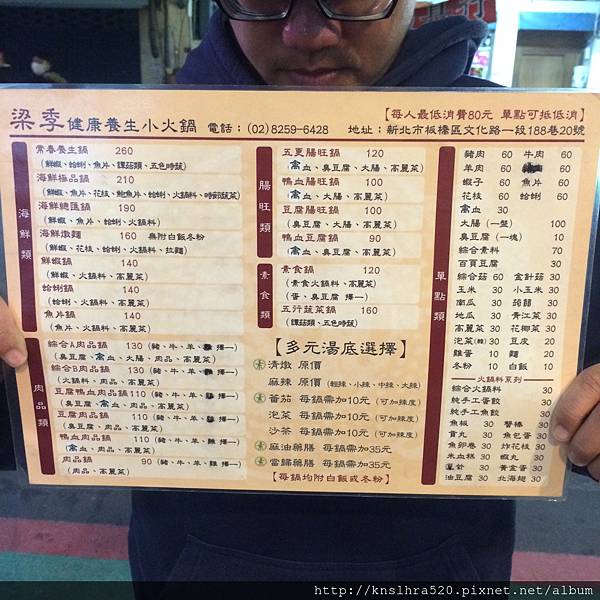 梁季健康養生小火鍋 電話：(02)8259-6428
【每人最低消費80元 單點可抵低消】
地址：新北市板橋區文化路一段188巷20號
海鮮類
常春養生鍋 260
(鮮蝦、蛤蜊、魚片、鑽菇類、五色時蔬)
海鮮極品鍋 210
(鮮蝦、魚片、花枝、鮑魚片、蛤蜊、火鍋料、時節蔬菜)
海鮮總匯鍋 190
(鮮蝦、魚片、蛤蜊、火鍋料)
海鮮燉麵 160 無附白飯冬粉
(鮮蝦、花枝、蛤蜊、火鍋料、拉麵)
鮮蝦鍋 140
(鮮蝦、火鍋料、高麗菜)
蛤蜊鍋 140
(蛤蜊、火鍋料、高麗菜)
魚片鍋 140
(魚片、火鍋料、高麗菜)
肉品類
綜合A肉品鍋 130 (豬、牛、羊、雞 擇一)
(臭豆腐、禽血、大腸、肉品、高麗菜)
綜合B肉品鍋 130 (豬、牛、羊、雞 擇一)
(火鍋料、肉品、高麗菜)
豆腐鴨血肉品鍋 110 (豬、牛、羊、雞 擇一)
(臭豆腐、禽血、肉品、高麗菜)
豆腐肉品鍋 110 (豬、牛、羊、雞 擇一)
(臭豆腐、肉品、高麗菜)
鴨血肉品鍋 110 (豬、牛、羊、雞 擇一)
(禽血、肉品、高麗菜)
肉品鍋 90 (豬、牛、羊、雞 擇一)
(肉品、高麗菜)
腸旺類
五更腸旺鍋 120
(禽血、臭豆腐、大腸、高麗菜)
鴨血腸旺鍋 100
(禽血、大腸、高麗菜)
豆腐腸旺鍋 100
(臭豆腐、大腸、高麗菜)
鴨血豆腐鍋 90
(禽血、臭豆腐、高麗菜)
素食類
素食鍋 120
(素食火鍋料、高麗菜)
(蛋、臭豆腐 擇一)
五行蔬菜鍋 160
(鑽菇類、五色時蔬)
【多元湯底選擇】
素 清燉 原價
麻辣 原價 (輕辣、小辣、中辣、大辣)
素 番茄 每鍋需加10元 (可加辣度)
泡菜 每鍋需加10元 (可加辣度)
沙茶 每鍋需加10元 (可加辣度)
素 麻油藥膳 每鍋需加35元
素 當歸藥膳 每鍋需加35元
【每鍋均附白飯或冬粉】
單點類
豬肉 60 牛肉 60
羊肉 60 60
蝦子 60 魚片 60
花枝 60 蛤蜊 60
禽血 30
大腸 (一盤) 100
臭豆腐 (一塊) 10
綜合素料 70
百頁豆腐 30
綜合菇 60 金針菇 30
玉米 30 小玉米 30
南瓜 30 蒟蒻 30
地瓜 30 青江菜 30
高麗菜 30 花椰菜 30
泡菜(韓) 30 豆皮 20
雞蛋 10 麵 20
冬粉 10 白飯 10
火鍋料系列
綜合火鍋料 30
純手工蛋餃 30
純手工魚餃 30
魚板 30 蟹棒 30
貢丸 30 魚包蛋 30
魚卵卷 30 炸花枝 30
米血糕 30 蝦丸 30
30 黃金蛋 30
油豆腐 30 北海翅 30
http://knslhra520.pixnet.net/album